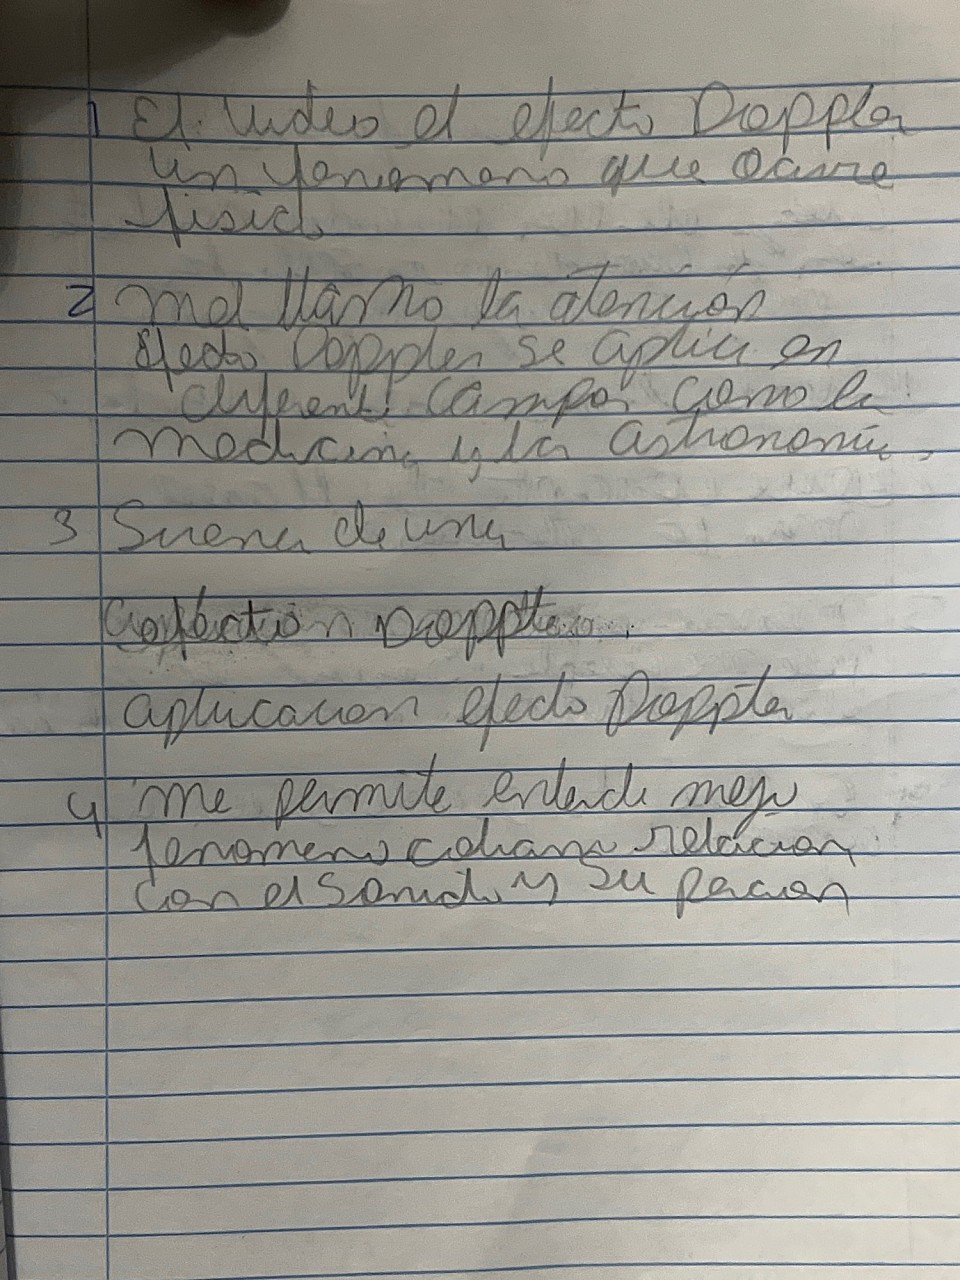 1 El video el efecto Doppler
un fenomeno que ocurre
fisico
2 me llamo la atención
Efecto Doppler se aplica en
diferent campo como la
medicina y la astronomia,
3 Suena de una
Doppler
aplicacion efecto Doppler
4 me permite entende mejo
fenomeno cotidiano relacion
con el sonido y su